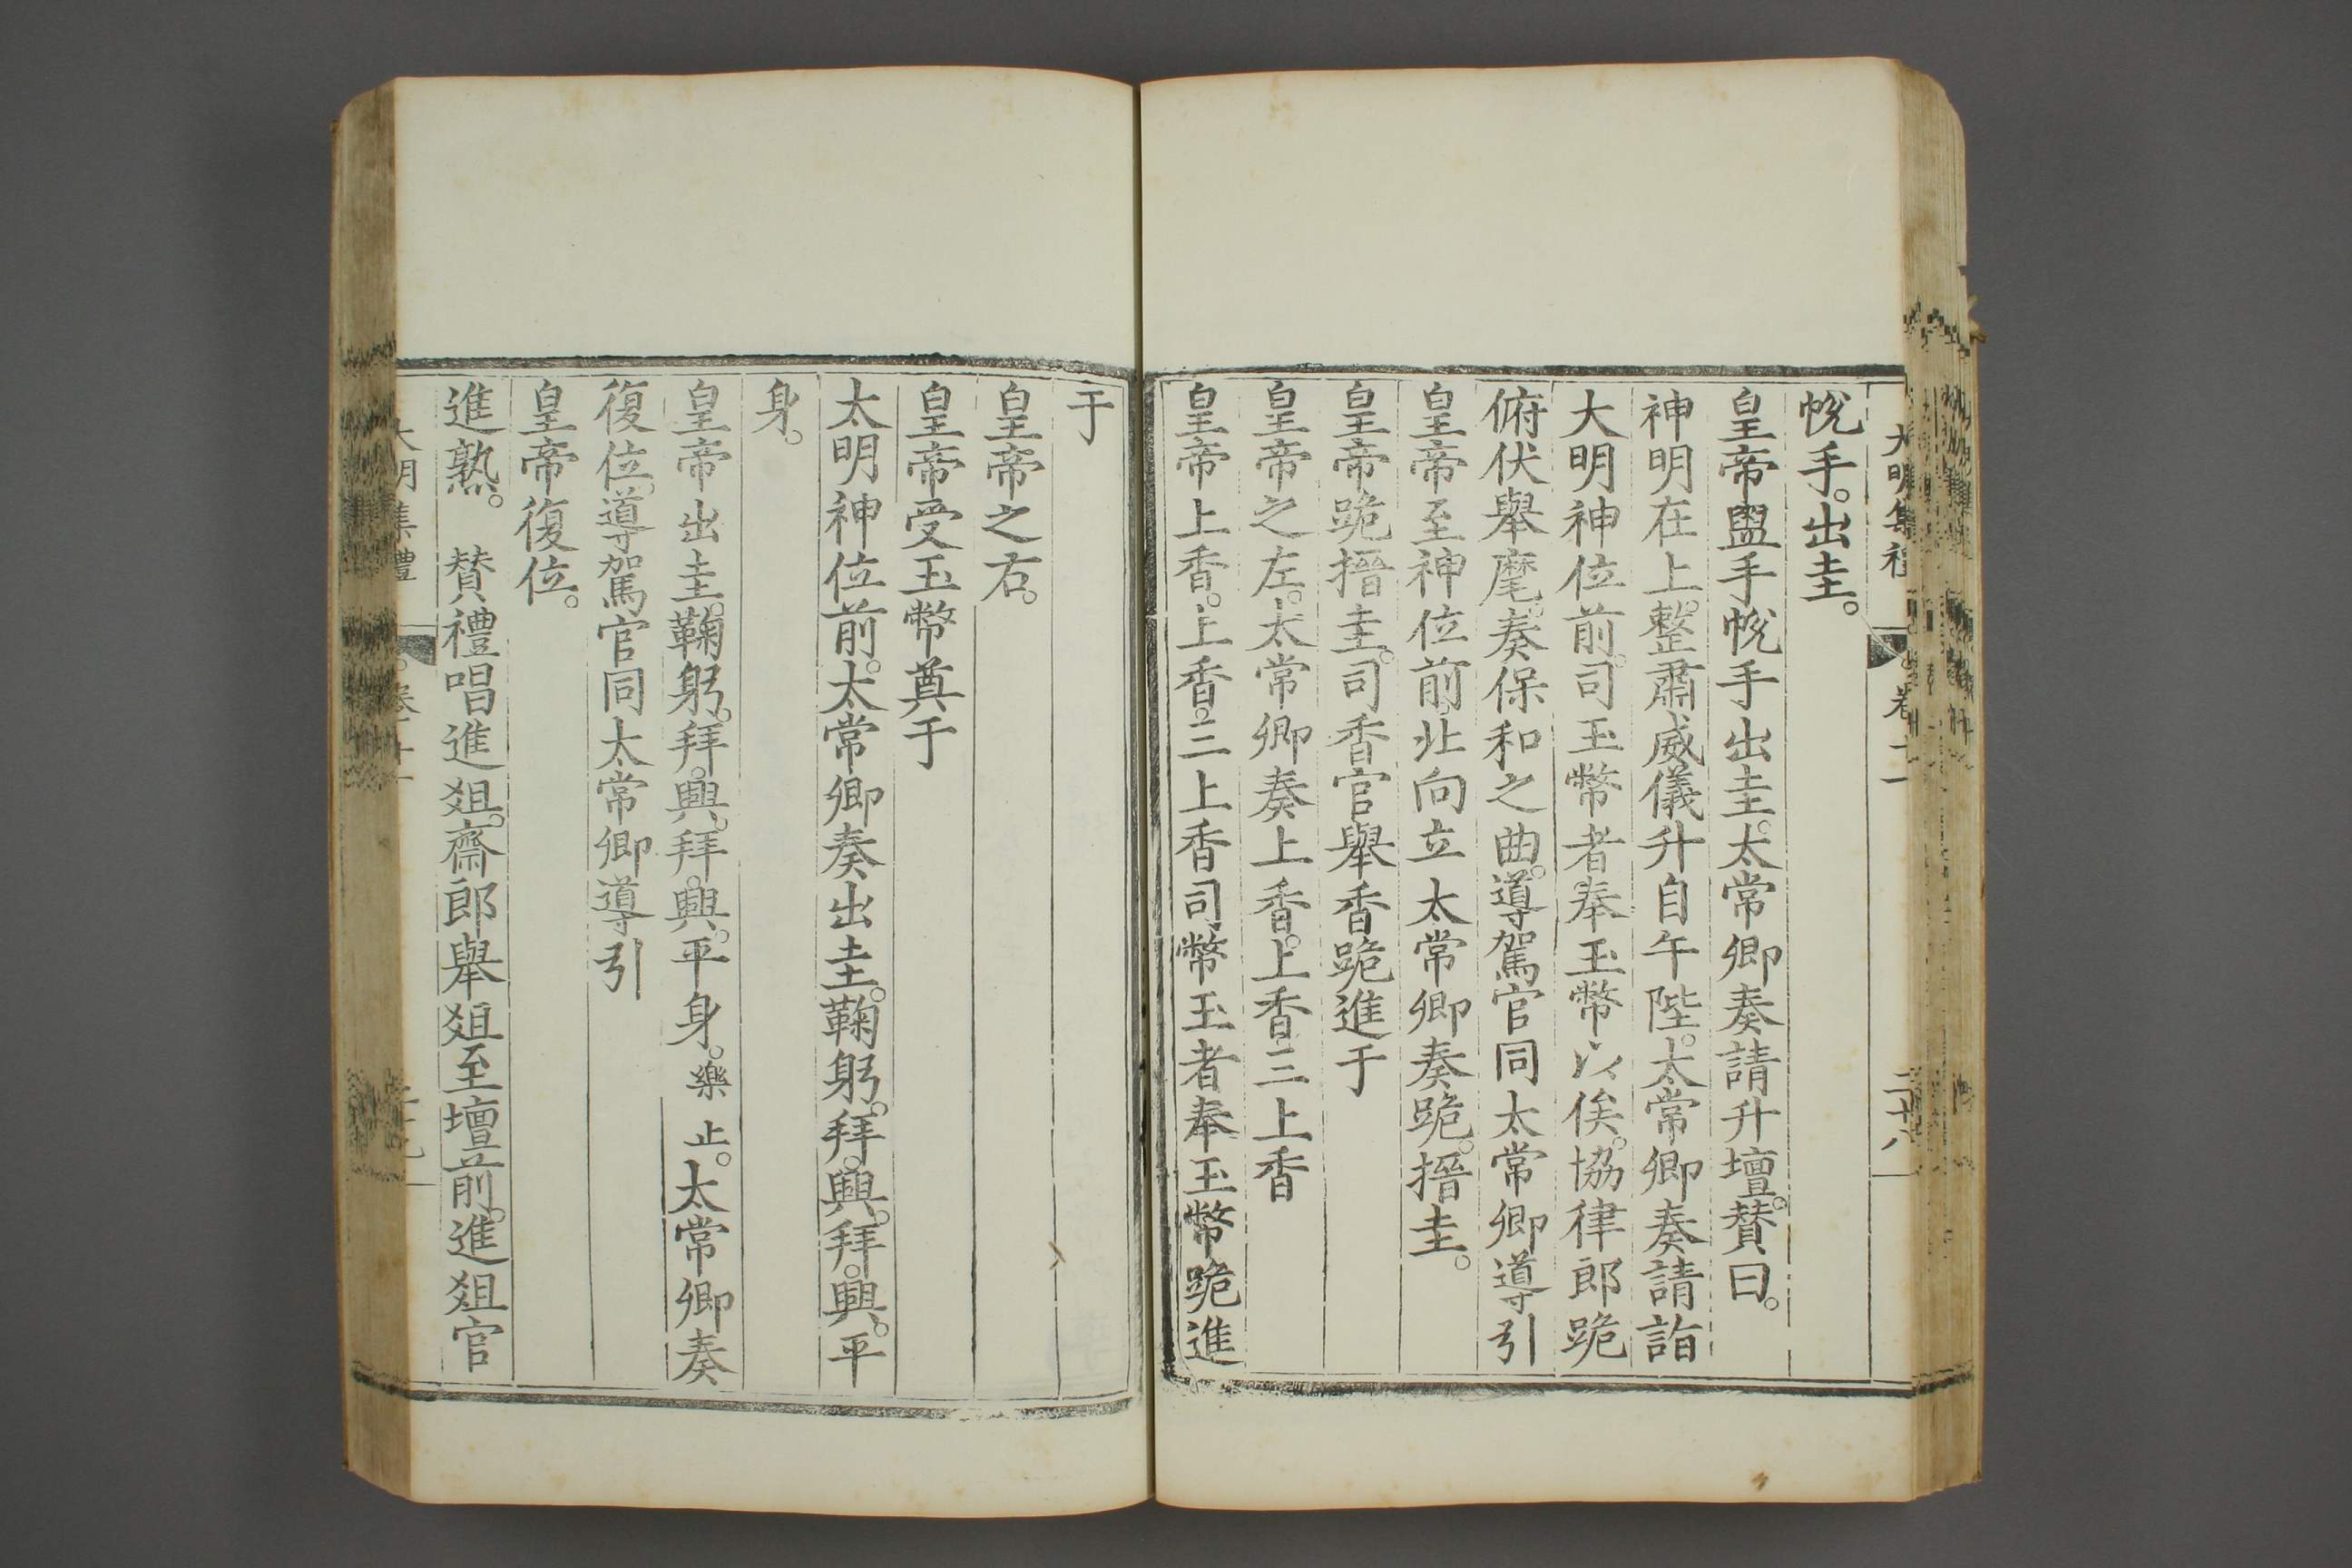 大明集禮 卷二十 二十八
帨手。出圭。
皇帝盥手帨手出圭。太常卿奏請升壇。贊曰。
神明在上。整肅威儀升自午陛。太常卿奏請詣
大明神位前。司玉幣者奉玉幣以俟。協律郎跪
俯伏舉麾。奏保和之曲。導駕官同太常卿導引
皇帝至神位前。北向立太常卿奏跪。搢圭。
皇帝跪搢圭。司香官舉香跪進于
皇帝之左。太常卿奏上香。上香三上香
皇帝上香。上香。三上香司幣玉者奉玉幣跪進
于
皇帝之右。
皇帝受玉幣奠于
太明神位前。太常卿奏出圭。鞠躬。拜。興。拜。興。平
身。
皇帝出圭。鞠躬。拜。興。拜。興。平身。樂止。太常卿奏
復位。導駕官同太常卿導引
皇帝復位。
進熟。 贊禮唱進俎。齋郎舉俎至壇前。進俎官
大明集禮